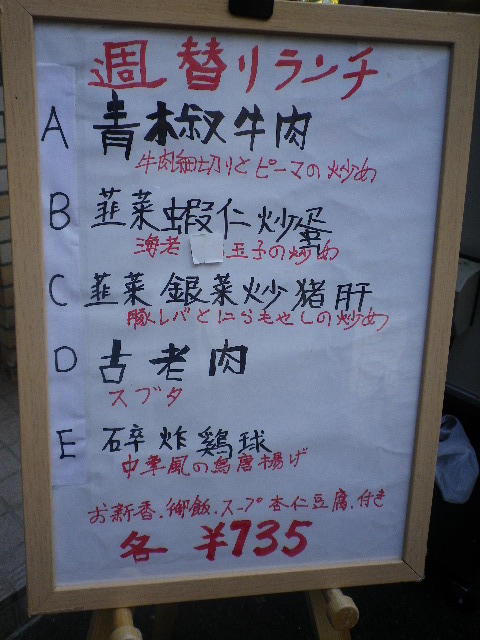 週替りランチ
A 青椒牛肉
牛肉細切りとピーマの炒め
B 韮菜蝦仁炒蛋
海老 玉子の炒め
C 韮菜銀菜炒猪肝
豚レバとにらもやしの炒め
D 古老肉
スブタ
E 碎炸鶏球
中華風の鳥唐揚げ
お新香.御飯.スープ杏仁豆腐.付き
各 ¥735